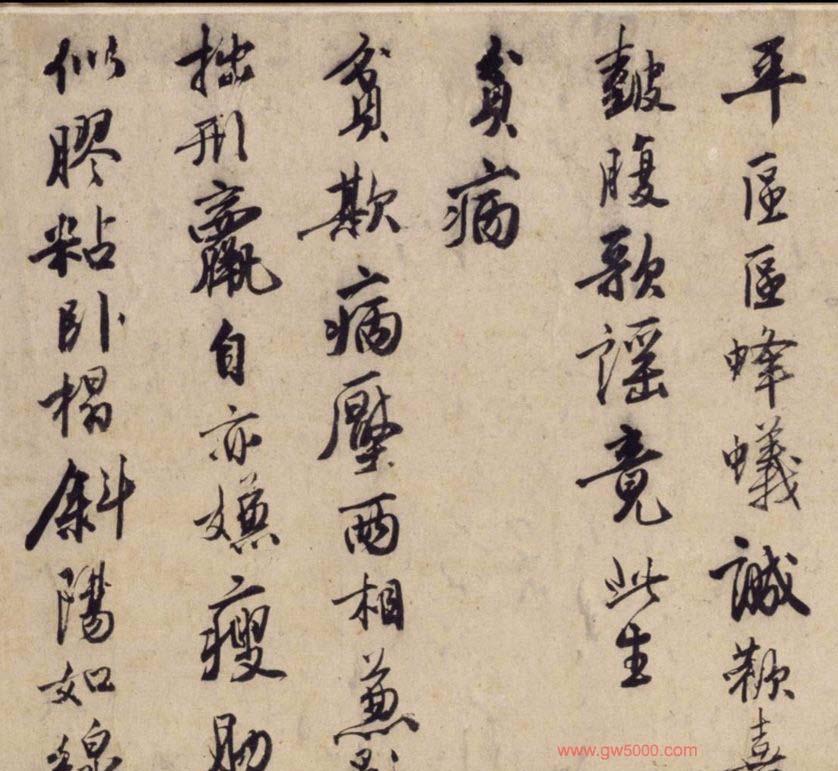 平區區蜂蟻誠歡喜
皷腹歌謡竟此生
貧病
貧欺病壓兩相兼影
拙形羸自亦嫌瘦肋
似膠粘卧榻斜陽如線
www.gw5000.com